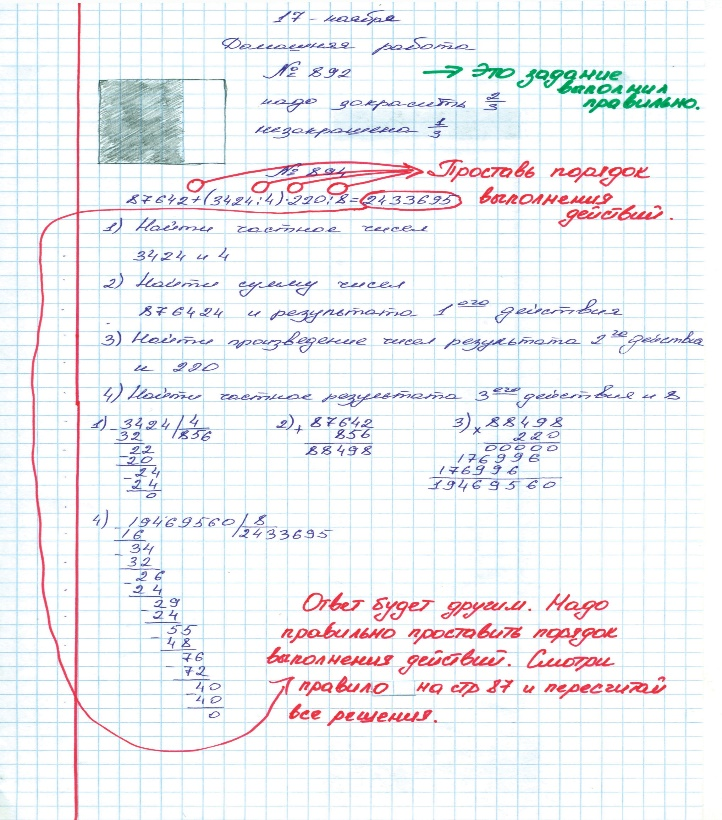 17-ноября
Домашняя работа
№ 892
→ Это задание
выполнил
правильно.
надо закрасить 2/3
незакрашена 1/3
№ 894
Проставь порядок
выполнения
действий.
87642+(3424:4)·220:8=2433695
1) Найти частное чисел
3424 и 4
2) Найти сумму чисел
876424 и результата 1ого действия
3) Найти произведение чисел результата 2го действия
и 220
4) Найти частное результата 3его действия и 8
1) - 3424 | 4
32 856
22
- 20
- 24
24
0
2) + 87642
856
88498
3) × 88498
220
00000
176996
176996
19469560
4) - 19469560 | 8
16 2433695
34
- 32
- 26
24
29
- 24
55
- 48
76
- 72
- 40
- 40
0
Ответ будет другим. Надо
правильно проставить порядок
выполнения действий. Смотри
правило на стр 87 и пересчитай
все решения.